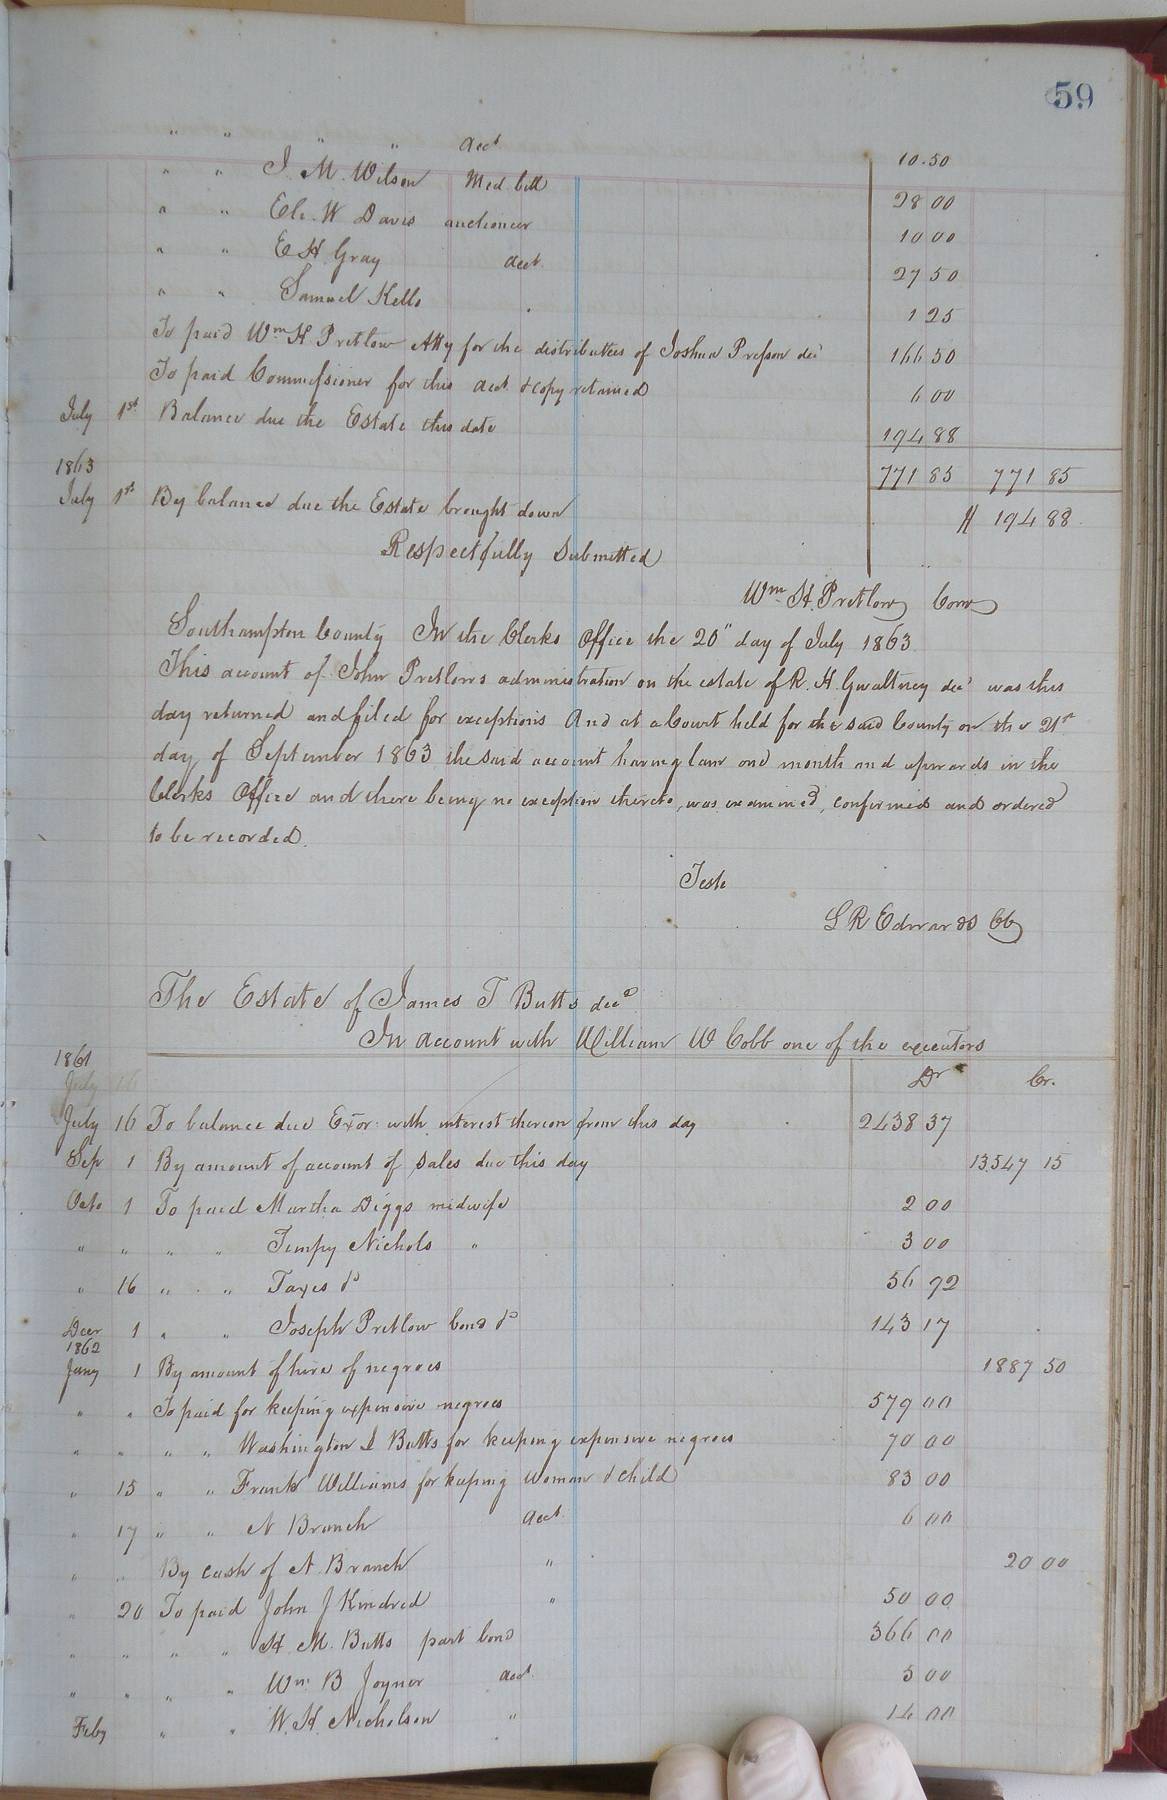 59
" " " " acct 10.50
" " J. M. Wilson Med bill 28 00
" " Eli. W Davis auctioneer 10 00
" " E H Gray acct 27 50
" " Samuel Kello 1 25
To paid Wm H Pretlow Atty for the distributees of Joshua Presson decd 166 50
To paid Commissioner for this acct & copy retained 6 00
July 1st Balance due the Estate this date 194 88
1863 771 85 771 85
July 1st By balance due the Estate brought down 194 88
Respectfully Submitted
Wm H. Pretlow Comr
Southampton County In the Clerks Office the 20" day of July 1863
This account of John Pretlows administration on the estate of R. H. Gwaltney decd was this
day returned and filed for exceptions And at a Court held for the said County on the 21st
day of September 1863 the said account having lain one month and upwards in the
Clerks Office and there being no exception thereto, was examined, confirmed and ordered
to be recorded.
Teste
L R Edwards CC
The Estate of James T Butts decd
In account with William W Cobb one of the executors
1861 Dr Cr.
July 16
July 16 To balance due Exor with interest thereon from this day 2438 37
Sep 1 By amount of account of sales due this day 13.547 15
Octo 1 To paid Martha Diggs midwife 2 00
" " " " Tempy Nichols " 3 00
" 16 " " Taxes do 56 72
Decr 1 " " Joseph Pretlow bond do 143 17
1862
Jany 1 By amount of hire of negroes 1887 50
" " To paid for keeping expensive negroes 579 00
" " " " Washington L Butts for keeping expensive negroes 70 00
" 15 " " Frank Williams for keeping woman & child 83 00
" 17 " " N Branch acct 6 00
" " By cash of N. Branch " 20 00
" 20 To paid John J Kindred " 50 00
" " " " H. M. Butts part bond 366 00
" " " " Wm B Joyner acct 5 00
Feby " " W. H. Nicholson " 14 00